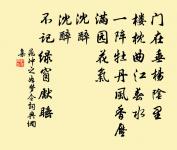 门在垂杨阴里
楼枕曲江春水
一阵牡丹风香压
满园花气
沈醉
沈醉
不记绿窗睡
如梦令词
集